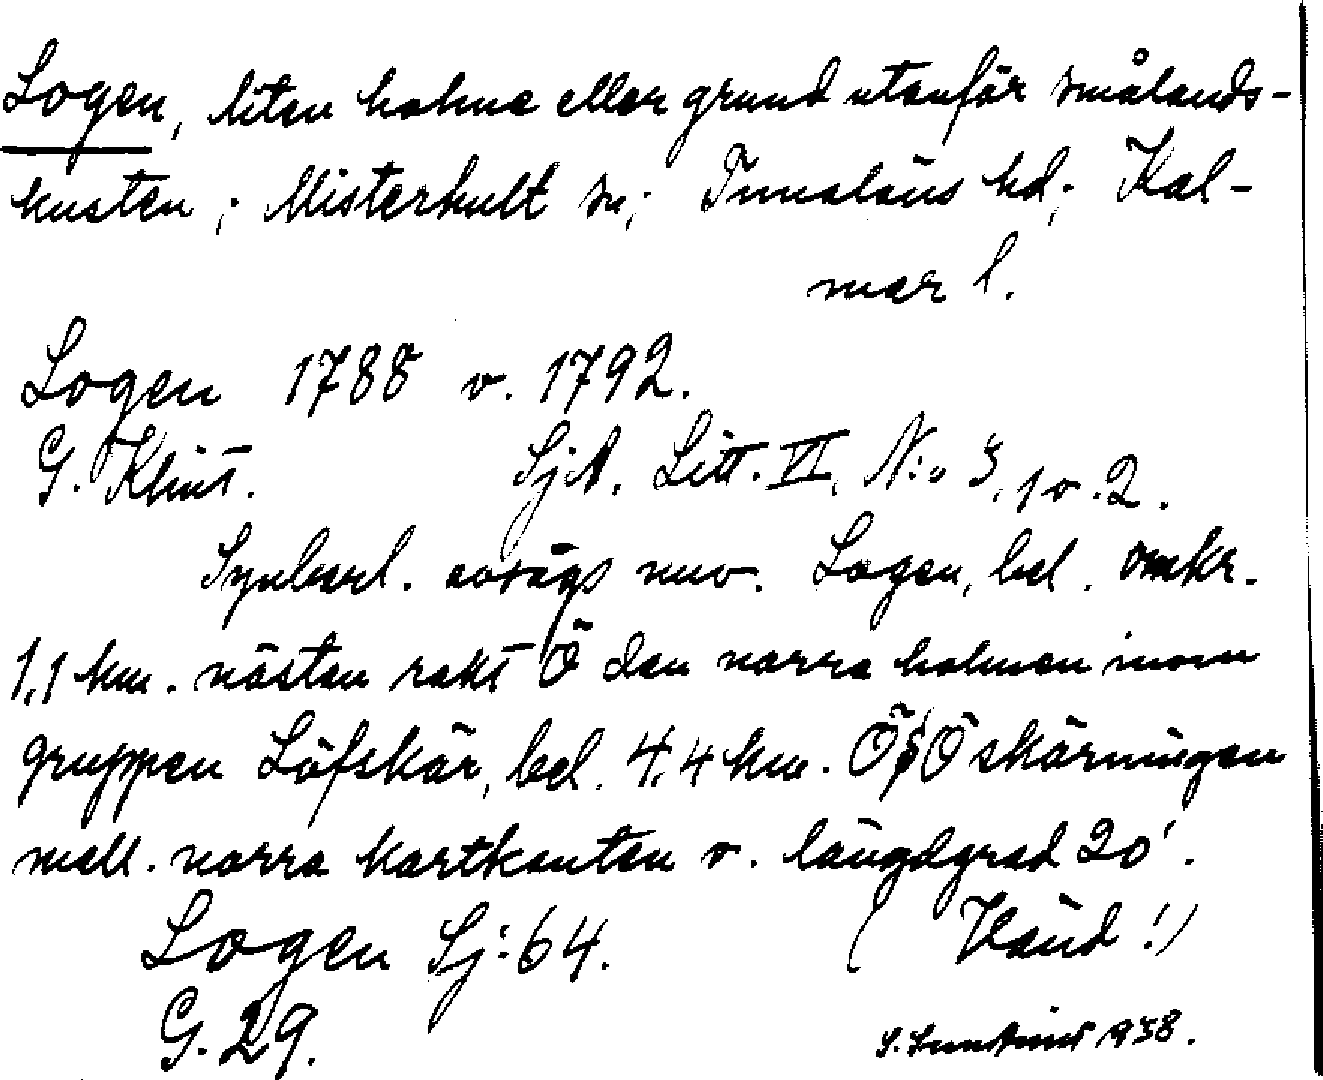 Logen, liten holme eller grund utanför smålands-
kusten; Misterhult sn; Tunaläns hd; Kal-
mar l.
Logen 1788 o. 1792.
G. Klint. SjA. Litt. VI, N:o 3, 1 o. 2.
Synbarl. avsågs nuv. Logen, bel. omkr.
1,1 km. nästan rakt Ö den norra holmen inom
gruppen Löfskär, bel. 4,4 km. ÖSÖ skärningen
mell. norra kartkanten o. längdgrad 20'.
Logen Sj: 64. (Vänd!)
G. 29. 1938.